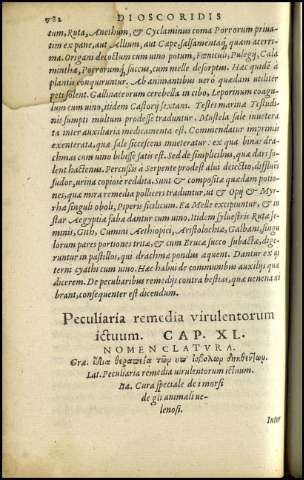 982 DIOSCORIDIS
tum, Ruta, Anethum, & Cyclaminus coma Porrorum priua-
tim ex pane, aut Allium, aut Cape, salsamentaq́; quam acerri-
ma. Origani decoctum cum uino potum, Fœniculi, Pulegij, Cala
minthæ, Porrorumq́; succus, cum melle desorptus. Hac quidē a
plantis conquiruntur. Ab animantibus uero quædam utiliter
peti solent. Gallinaceorum cerebella in cibo, Leporinum coagu-
lum cum uino, itidem Castorij sextans. Testes marinæ Testudi-
nis sumpti multum prodesse traduntur. Mustela sale inuetera
ta inter auxiliaria medicamenta est. Commendatur imprimis
exenterata, quæ sale siccescens inueterat: ex qua binas dra-
chmas cum uino bibisse satis est. Sed de simplicibus, quæ dari so-
lent hactenus. Percussis à Serpente prodest alui deiectio, difflusis
sudor, urina copiose reddita. Sunt & composita quædam potio-
nes, quæ mira remedia polliceri traduntur, ut & Opij & My-
rrhæ singuli oboli, Piperis siciliscum. Ea Melle excipiuntur, & in
star Aegyptiæ fabæ dantur cum uino, Itidem syluestris Rutæ se-
minis, Gith, Cumini Aethiopici, Aristolochiæ, Galbani, singu-
lorum pares portiones tritæ, & cum Erucæ succo subactæ, dige-
runtur in pastillos, qui drachma pondus æquent. Dantur ex qua
ternis cyathi cum uino. Hac habui de communibus auxilijs quæ
dicerem. De peculiaribus remedijs contra bestias, quæ uenena ui
brant, consequenter est dicendum.
Peculiaria remedia virulentorum
ictuum. CAP. XL.
NOMENCLATVRA.
Græ. ἰδία θεραπεία τῶν ὑπὸ ἰοβόλων δηχθέντων.
Lat. Peculiaria remedia uirulentorum ictuum.
Ita. Cura speciale de i morsi
de gli animali ue-
lenosi.
Inter